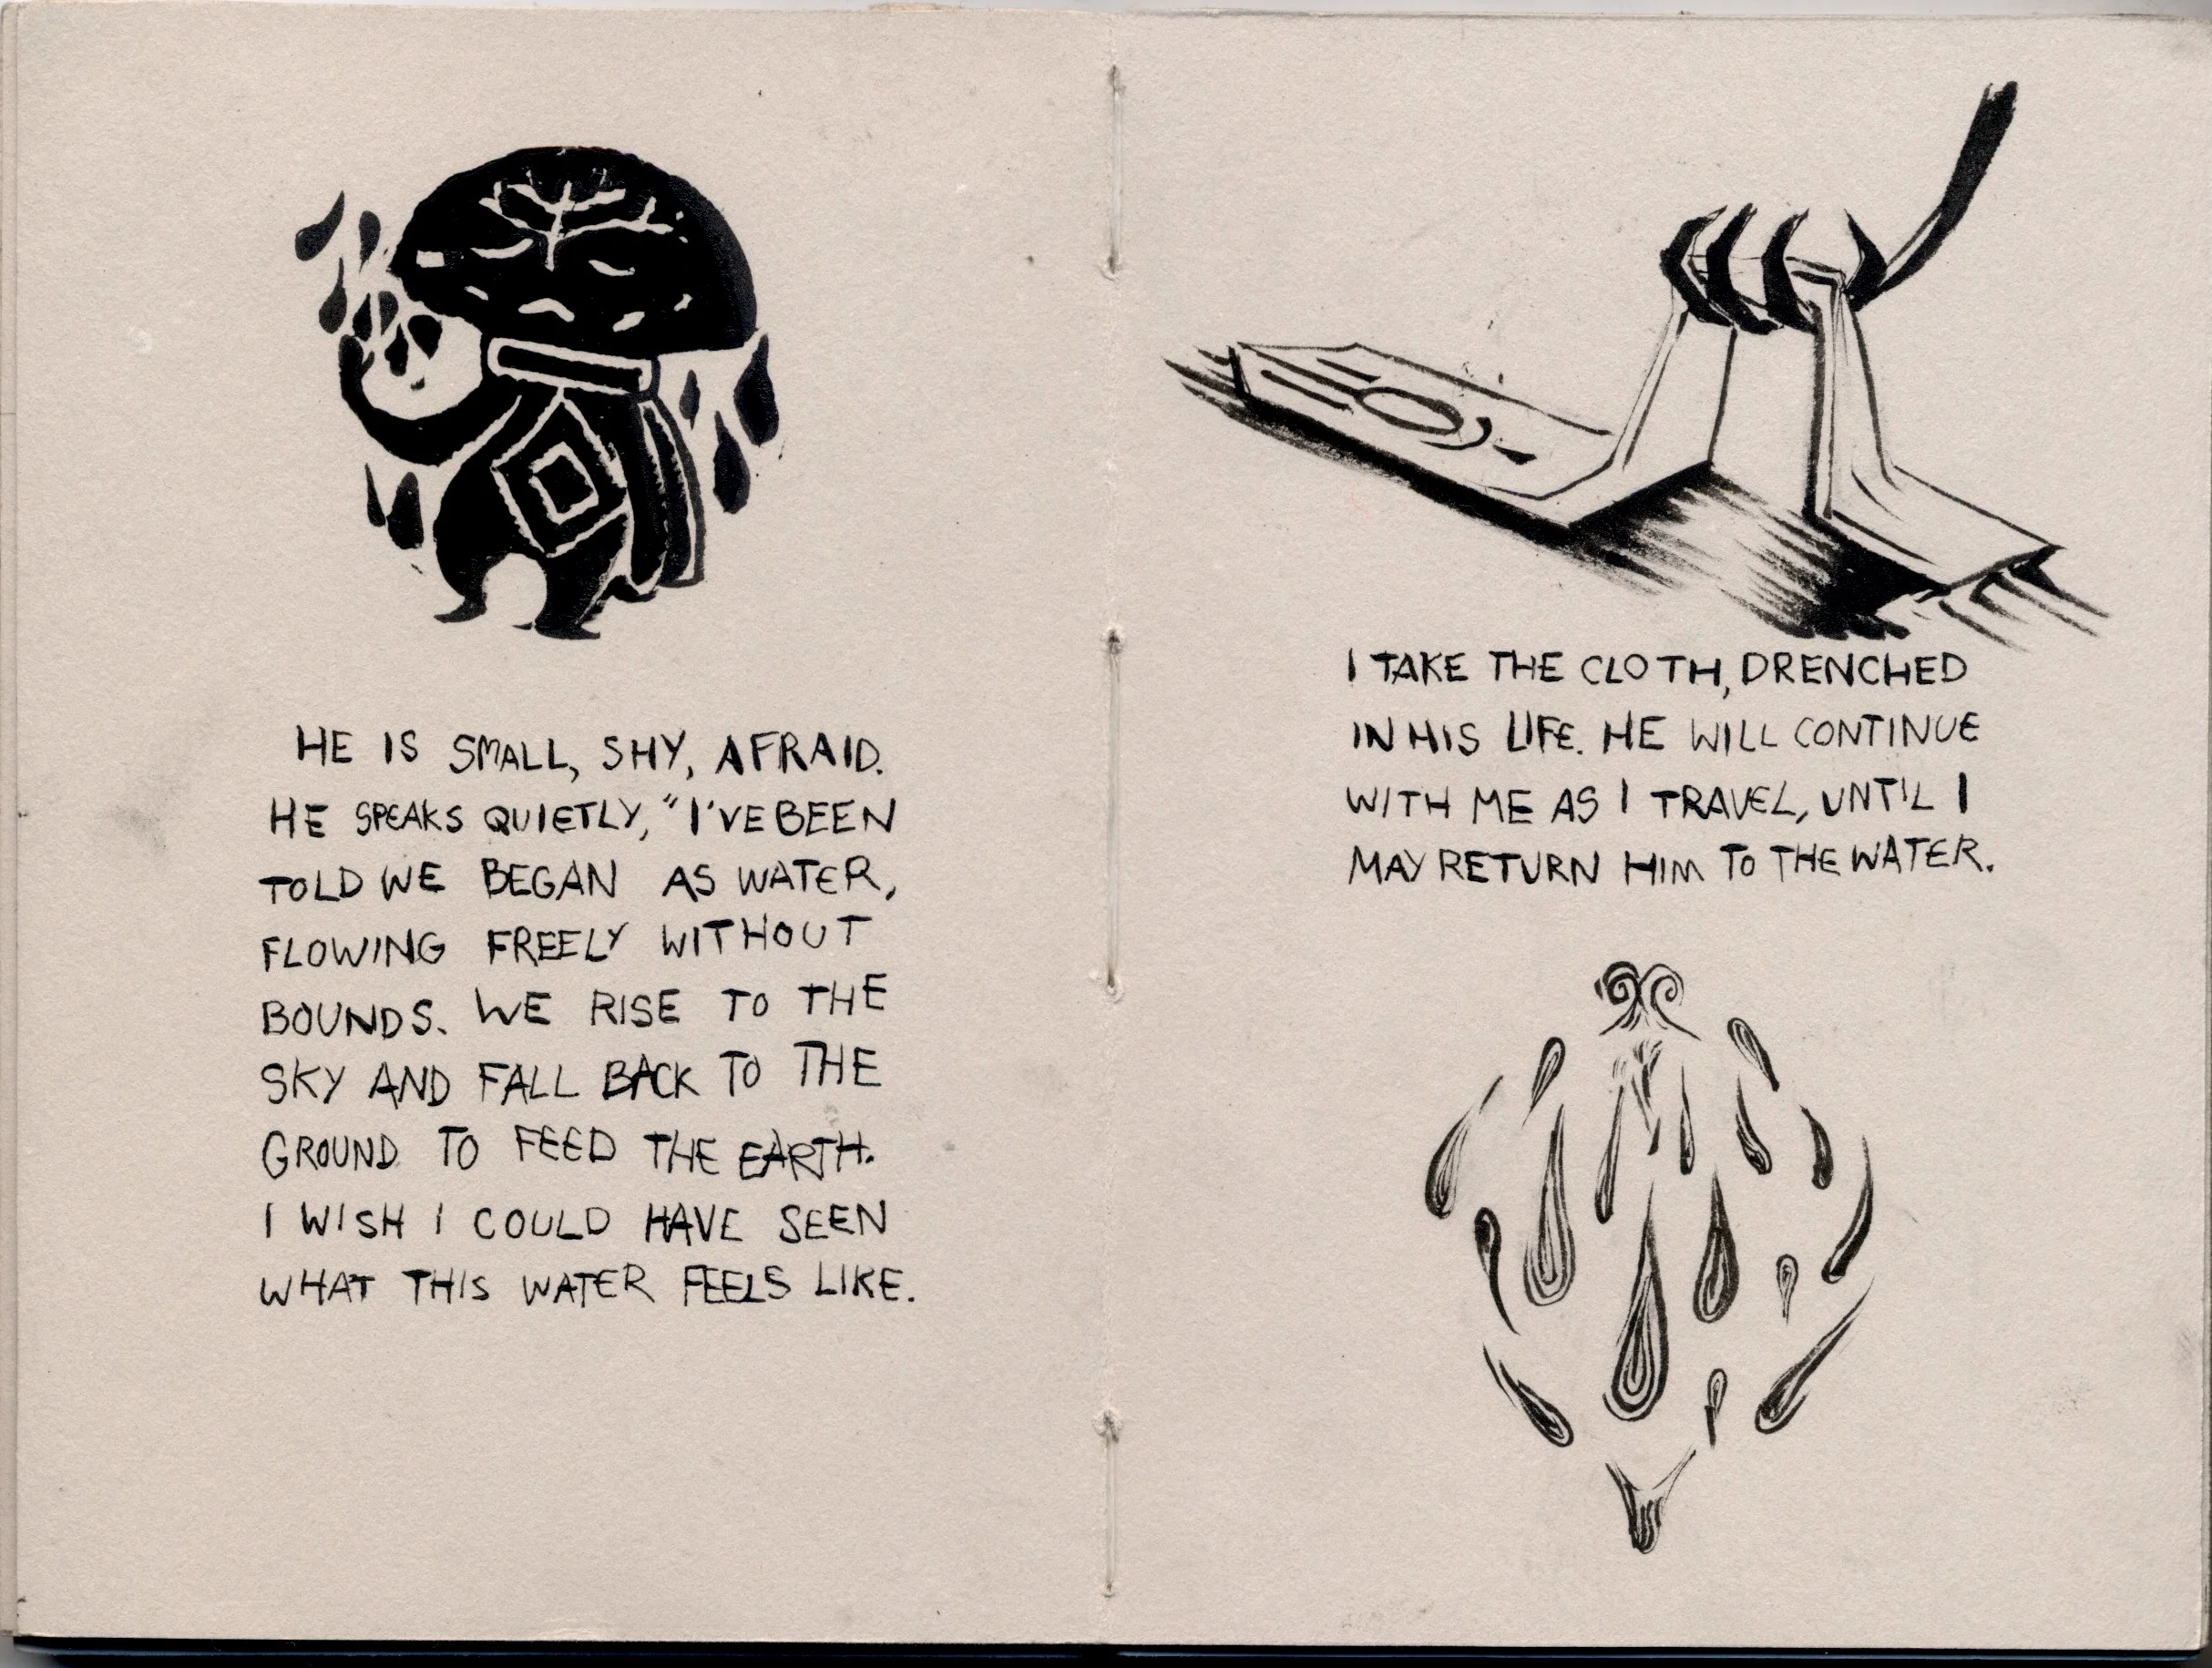 HE IS SMALL, SHY, AFRAID.
HE SPEAKS QUIETLY, "I'VE BEEN
TOLD WE BEGAN AS WATER,
FLOWING FREELY WITHOUT
BOUNDS. WE RISE TO THE
SKY AND FALL BACK TO THE
GROUND TO FEED THE EARTH.
I WISH I COULD HAVE SEEN
WHAT THIS WATER FEELS LIKE.
I TAKE THE CLOTH, DRENCHED
IN HIS LIFE. HE WILL CONTINUE
WITH ME AS I TRAVEL, UNTIL I
MAY RETURN HIM TO THE WATER.